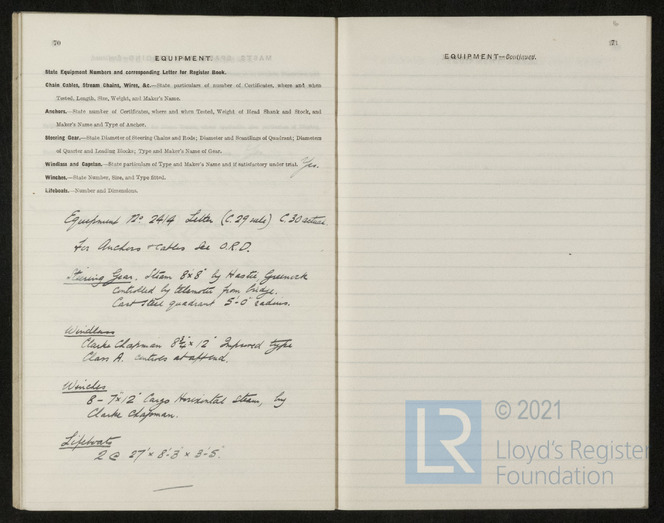 70
EQUIPMENT.
State Equipment Numbers and corresponding Letter for Register Book.
Chain Cables, Stream Chains, Wires, &c.—State particulars of number of Certificates, where and when
Tested, Length, Size, Weight, and Maker's Name.
Anchors.—State number of Certificates, where and when Tested, Weight of Head Shank and Stock, and
Maker's Name and Type of Anchor.
Steering Gear.—State Diameter of Steering Chains and Rods; Diameter and Scantlings of Quadrant; Diameters
of Quarter and Leading Blocks; Type and Maker's Name of Gear.
Windlass and Capstan.—State particulars of Type and Maker's Name and if satisfactory under trial. Yes.
Winches.—State Number, Size, and Type fitted.
Lifeboats.—Number and Dimensions.
Equipment No. 2414 Letter (C.29 rule) C.30 actual.
For Anchors & Cables see O.R.D.
Steering Gear. Steam 8"x8" by Hastie Greenock
controlled by telemotor from bridge.
Cast steel quadrant 5'-0" radius.
Windlass
Clarke Chapman 8½" x 12" Improved type
Class A. controls at aft end.
Winches
8 - 7"x12" Cargo Horizontal Steam, by
Clarke Chapman.
Lifeboats
2 @ 27' x 8'-3" x 3'-5".
71
EQUIPMENT—Continued.
LR
© 2021
Lloyd's Register
Foundation